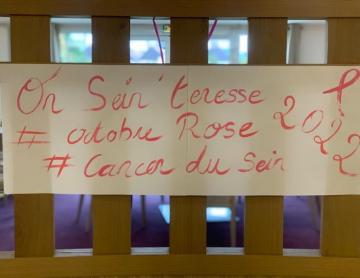 On Sein'teresse
# octobre Rose
# Cancer du Sein
2022